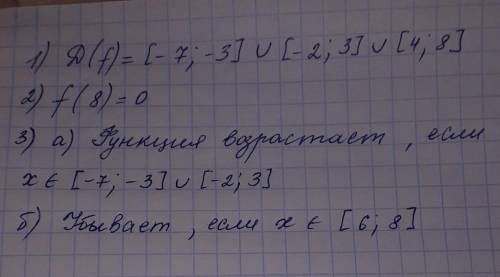 1) D(f) = [-7; -3] ∪ [-2; 3] ∪ [4; 8]
2) f(8) = 0
3) а) Функция возрастает, если
x ∈ [-7; -3] ∪ [-2; 3]
б) Убывает, если x ∈ [6; 8]